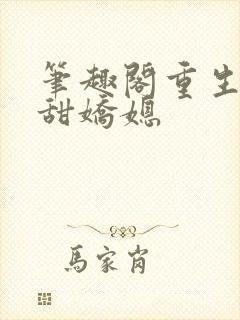 筆趣閣重生
甜嬌媳
馬家肖